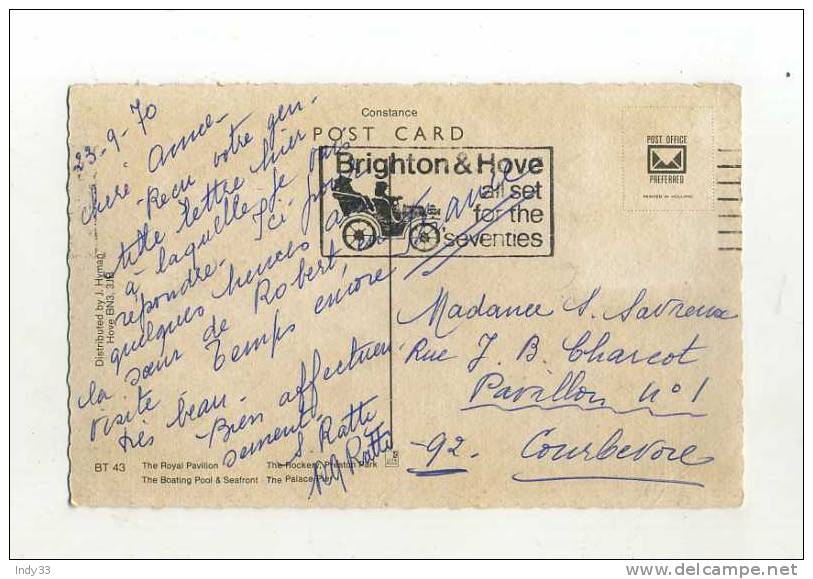 Constance
POST CARD
POST OFFICE
PREFERRED
PRINTED IN HOLLAND
Brighton & Hove
all set
for the
seventies
23-9-70
chère amie
Reçu votre gen-
tille lettre hier
à laquelle je vais
répondre. Ici pour
quelques heures à
la sœur de Robert en
visite. Temps encore
très beau.
Bien affectueu-
sement.
S. Ratti
Ratti
Madame S.
Rue J. B. Charcot
Pavillon n° 1
-92. Courbevoie
Distributed by J. Hyman
Hove BN3,
BT 43
The Royal Pavilion The Rockery, Preston Park
The Boating Pool & Seafront The Palace Pier
Indy33
www.delcampe.net